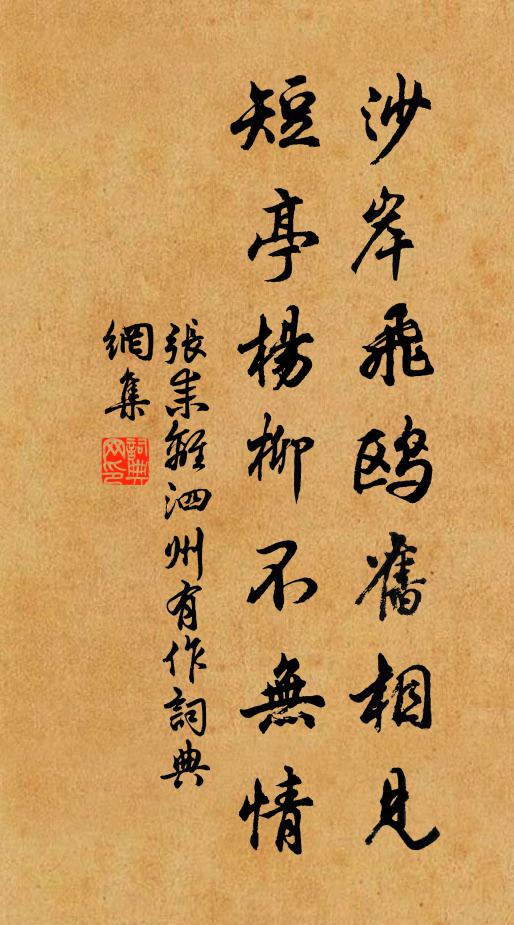 沙岸飛鷗舊相見
短亭楊柳不無情
張耒離泗州有作詞典
網集
詞典網印